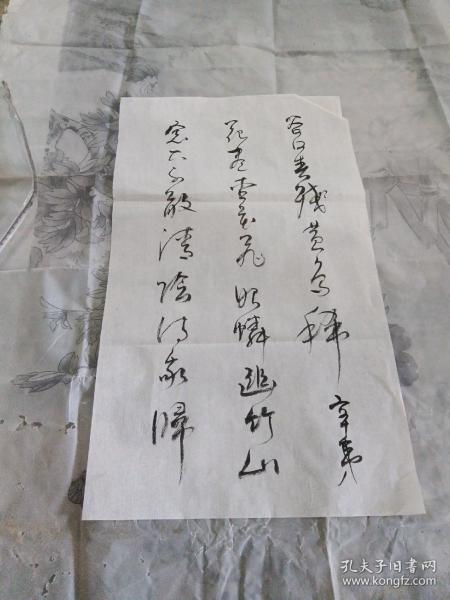 谷口春殘黄鸟稀辛夷
花盡杏花飛始憐幽竹山
窓下不改清陰待我歸
孔夫子旧书网
www.kongfz.com